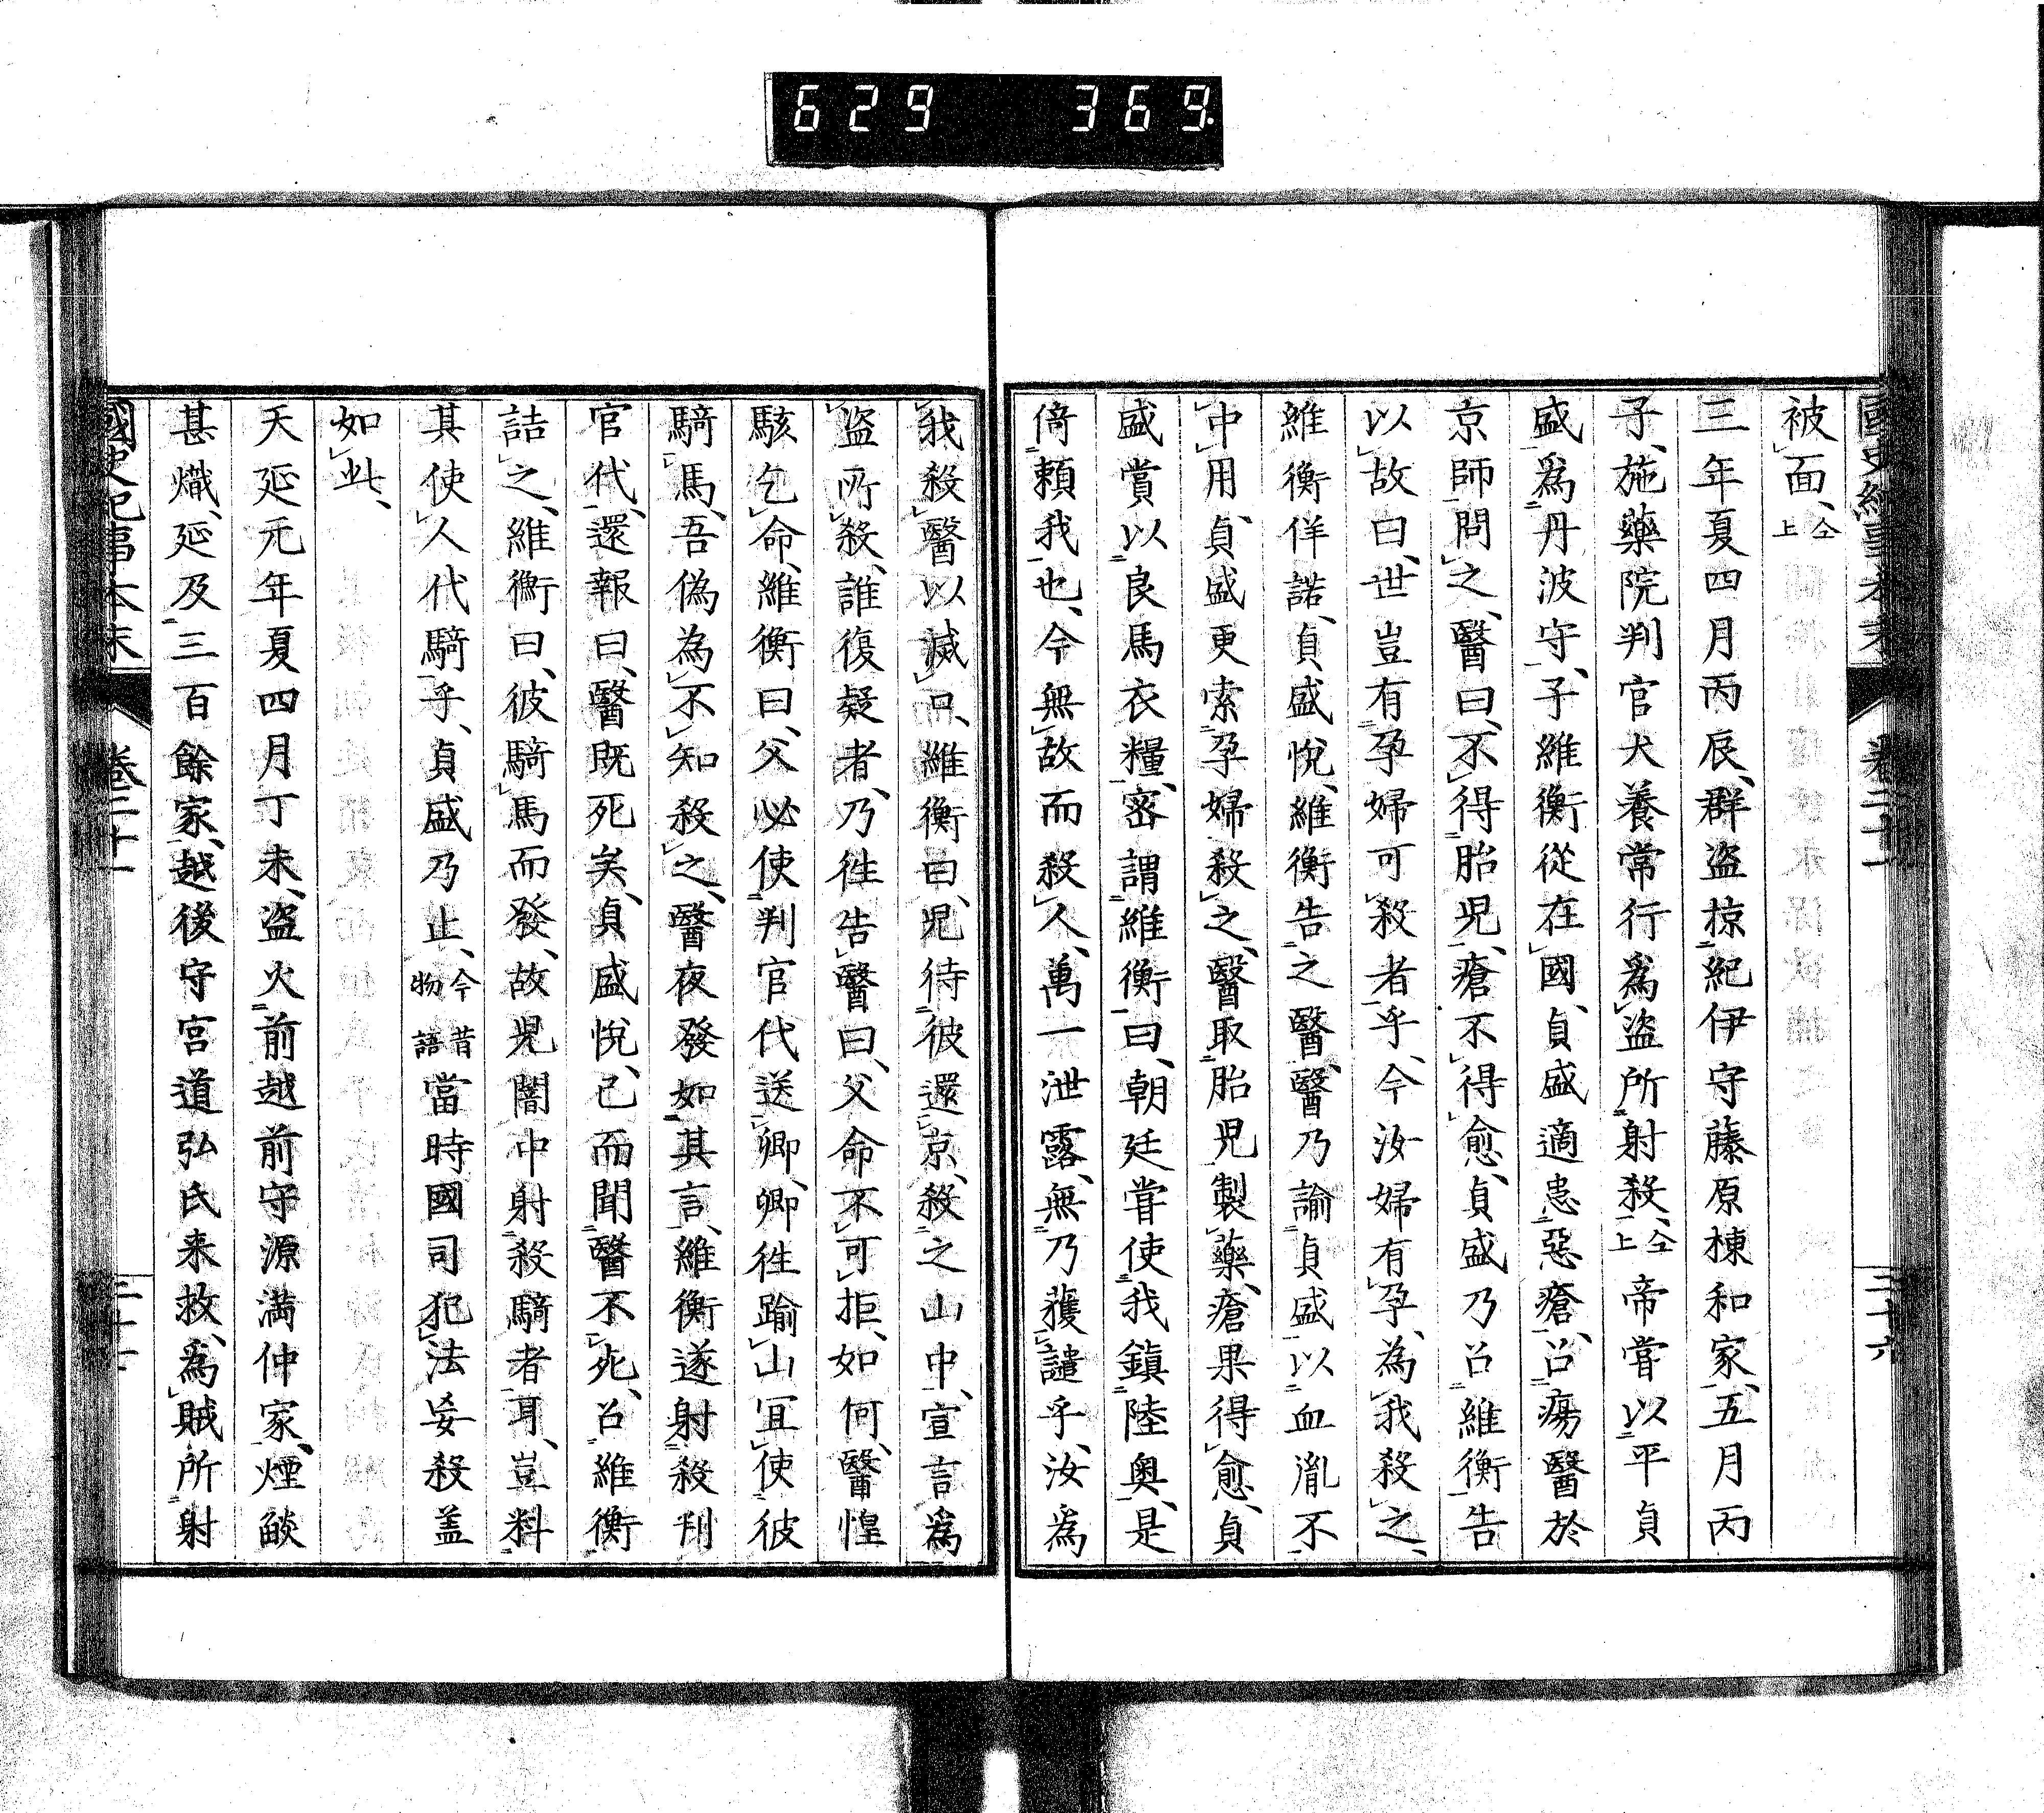 629 369
國史紀事本末 卷二十一 三十六
被面、仝上
三年夏四月丙辰、群盜掠紀伊守藤原棟和家、五月丙
子、施藥院判官犬養常行爲盜所射殺、仝上帝嘗以平貞
盛爲丹波守、子維衡從在國、貞盛適患惡瘡、召瘍醫於
京師問之、醫曰、不得胎兒、瘡不得愈、貞盛乃召維衡告
以故曰、世豈有孕婦可殺者乎、今汝婦有孕、為我殺之、
維衡佯諾、貞盛悅、維衡告之醫、醫乃諭貞盛以血胤不
中用、貞盛更索孕婦殺之、醫取胎兒製藥、瘡果得愈、貞
盛賞以良馬衣糧、密謂維衡曰、朝廷嘗使我鎭陸奧、是
倚賴我也、今無故而殺人、萬一泄露、無乃獲譴乎、汝爲
我殺醫以滅口、維衡曰、兒待彼還京、殺之山中、宣言爲
盜所殺、誰復疑者、乃往告醫曰、父命不可拒、如何、醫惶
駭乞命、維衡曰、父必使判官代送卿、卿徃踰山冝使彼
騎馬、吾偽為不知殺之、醫夜發如其言、維衡遂射殺判
官代、還報曰、醫既死矣、貞盛悅、已而聞醫不死、召維衡
詰之、維衡曰、彼騎馬而發、故兒闇中射殺騎者耳、豈料
其使人代騎乎、貞盛乃止、今昔物語當時國司犯法妄殺盖
如此、
天延元年夏四月丁未、盜火前越前守源満仲家、煙燄
甚熾、延及三百餘家、越後守宮道弘氏来救、爲賊所射
國史紀事本末 卷二十一